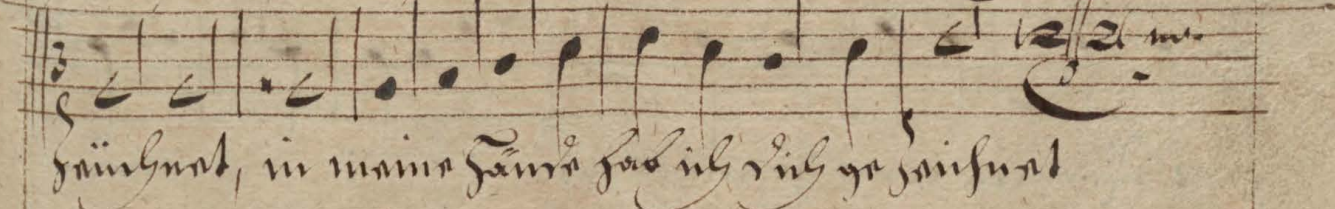 zeichnet, in meine Hände hab ich dich ge zeichnet